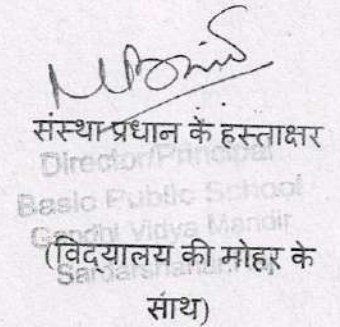 संस्था प्रधान के हस्ताक्षर
Director/Principal
Basic Public School
Gandhi Vidya Mandir
(विद्यालय की मोहर के
साथ)